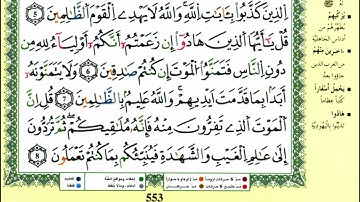 الَّذِينَ كَذَّبُوا بِآيَاتِ اللَّهِ وَاللَّهُ لَا يَهْدِي الْقَوْمَ الظَّالِمِينَ ٥
قُلْ يَا أَيُّهَا الَّذِينَ هَادُوا إِن زَعَمْتُمْ أَنَّكُمْ أَوْلِيَاءُ لِلَّهِ مِن
دُونِ النَّاسِ فَتَمَنَّوُا الْمَوْتَ إِن كُنتُمْ صَادِقِينَ ٦ وَلَا يَتَمَنَّوْنَهُ
أَبَدًا بِمَا قَدَّمَتْ أَيْدِيهِمْ وَاللَّهُ عَلِيمٌ بِالظَّالِمِينَ ٧ قُلْ إِنَّ
الْمَوْتَ الَّذِي تَفِرُّونَ مِنْهُ فَإِنَّهُ مُلَاقِيكُمْ ثُمَّ تُرَدُّونَ
إِلَى عَالِمِ الْغَيْبِ وَالشَّهَادَةِ فَيُنَبِّئُكُم بِمَا كُنتُمْ تَعْمَلُونَ ٨
يُزَكِّيهِمْ
يُطَهِّرُهُم من
أدناس الجاهلية
من العرب الذين
يَحْمِلُ أَسْفَارًا
هَادُوا
تديّنوا باليهودية
553